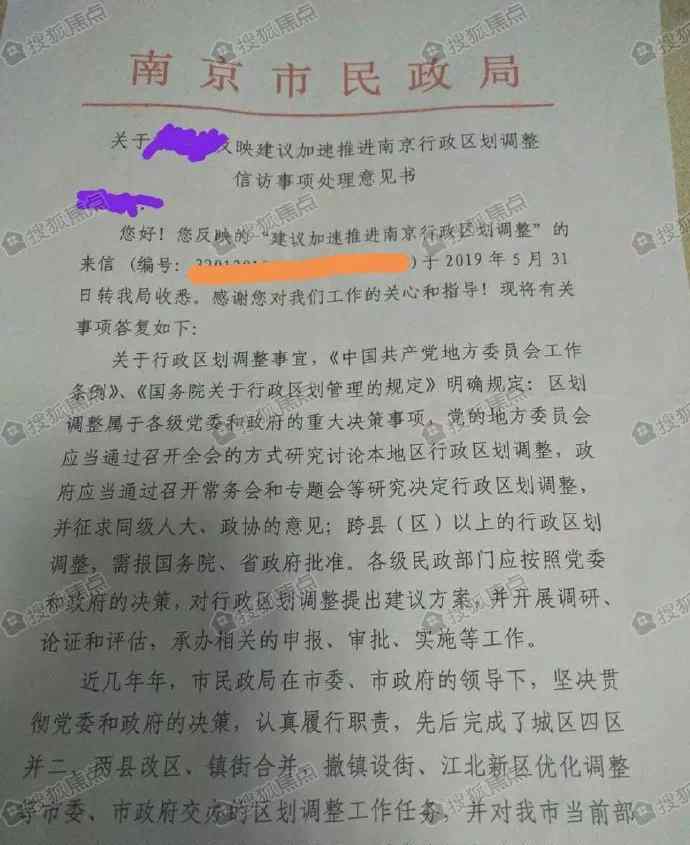 南京市民政局
关于 反映建议加速推进南京行政区划调整
信访事项处理意见书
您好！您反映的“建议加速推进南京行政区划调整”的
来信（编号： ）于2019年5月31
日转我局收悉。感谢您对我们工作的关心和指导！现将有关
事项答复如下：
关于行政区划调整事宜，《中国共产党地方委员会工作
条例》、《国务院关于行政区划管理的规定》明确规定：区划
调整属于各级党委和政府的重大决策事项，党的地方委员会
应当通过召开全会的方式研究讨论本地区行政区划调整，政
府应当通过召开常务会和专题会等研究决定行政区划调整，
并征求同级人大、政协的意见；跨县（区）以上的行政区划
调整，需报国务院、省政府批准。各级民政部门应按照党委
和政府的决策，对行政区划调整提出建议方案，并开展调研、
论证和评估，承办相关的申报、审批、实施等工作。
近几年年，市民政局在市委、市政府的领导下，坚决贯
彻党委和政府的决策，认真履行职责，先后完成了城区四区
并二、两县改区、镇街合并，撤镇设街、江北新区优化调整
等市委、市政府交办的区划调整工作任务，并对我市当前部
搜狐焦点